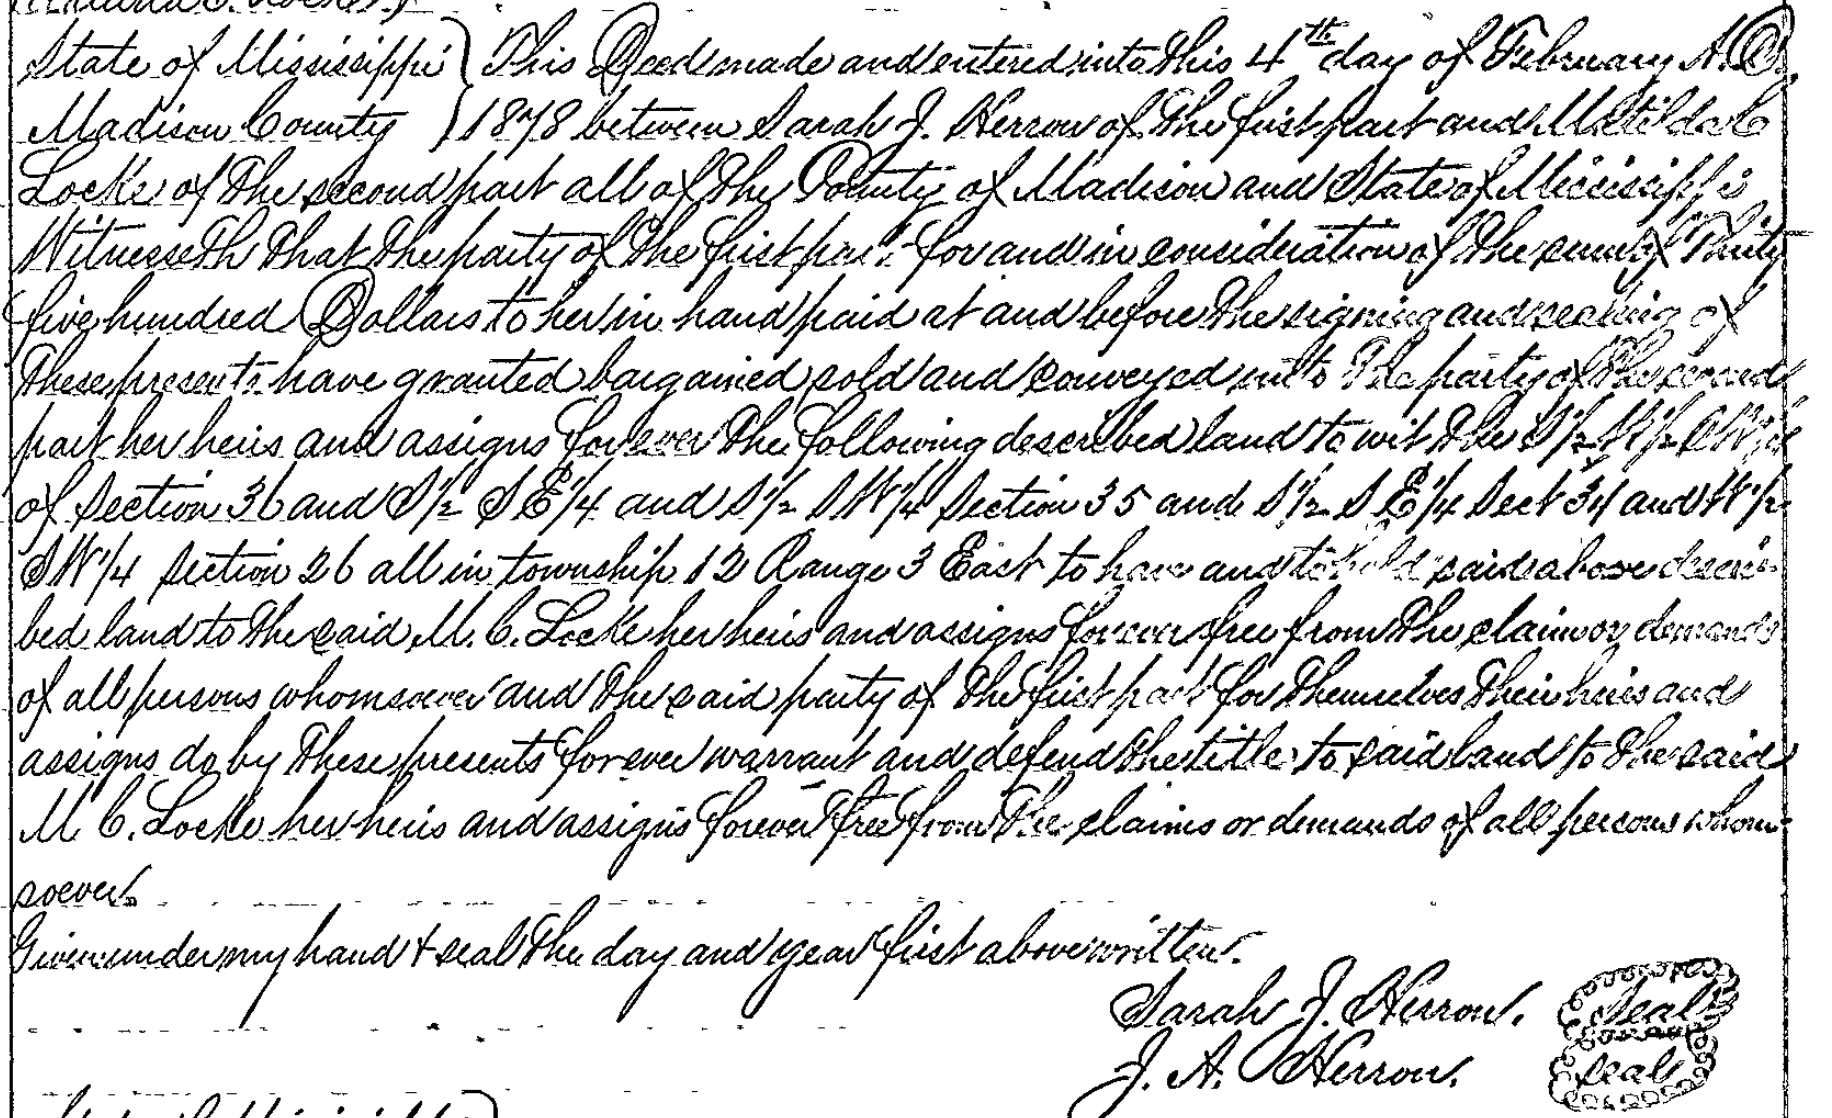 State of Mississippi } This Deed made and entered into this 4th day of February A.D.
Madison County } 1878 between Sarah J. Herron of the first part and Matilda C
Locke of the second part all of the County of Madison and State of Mississippi
Witnesseth that the party of the first part for and in consideration of the sum of Thirty
five hundred Dollars to her in hand paid at and before the signing and sealing of
these presents have granted bargained sold and conveyed unto the party of the second
part her heirs and assigns forever the following described land to wit the S½
of Section 36 and S½ SE¼ and S½ SW¼ Section 35 and S½ SE¼ Sect 34 and W½
SW¼ Section 26 all in township 12 Range 3 East to have and to hold said above descri-
bed land to the said M. C. Locke her heirs and assigns forever free from the claim or demands
of all persons whomsoever and the said party of the first part for themselves their heirs and
assigns do by these presents forever warrant and defend the title to said land to the said
M C. Locke her heirs and assigns forever free from the claims or demands of all persons whom-
soever.
Given under my hand & seal the day and year first above written.
Sarah J. Herron. Seal
J. A. Herron. Seal